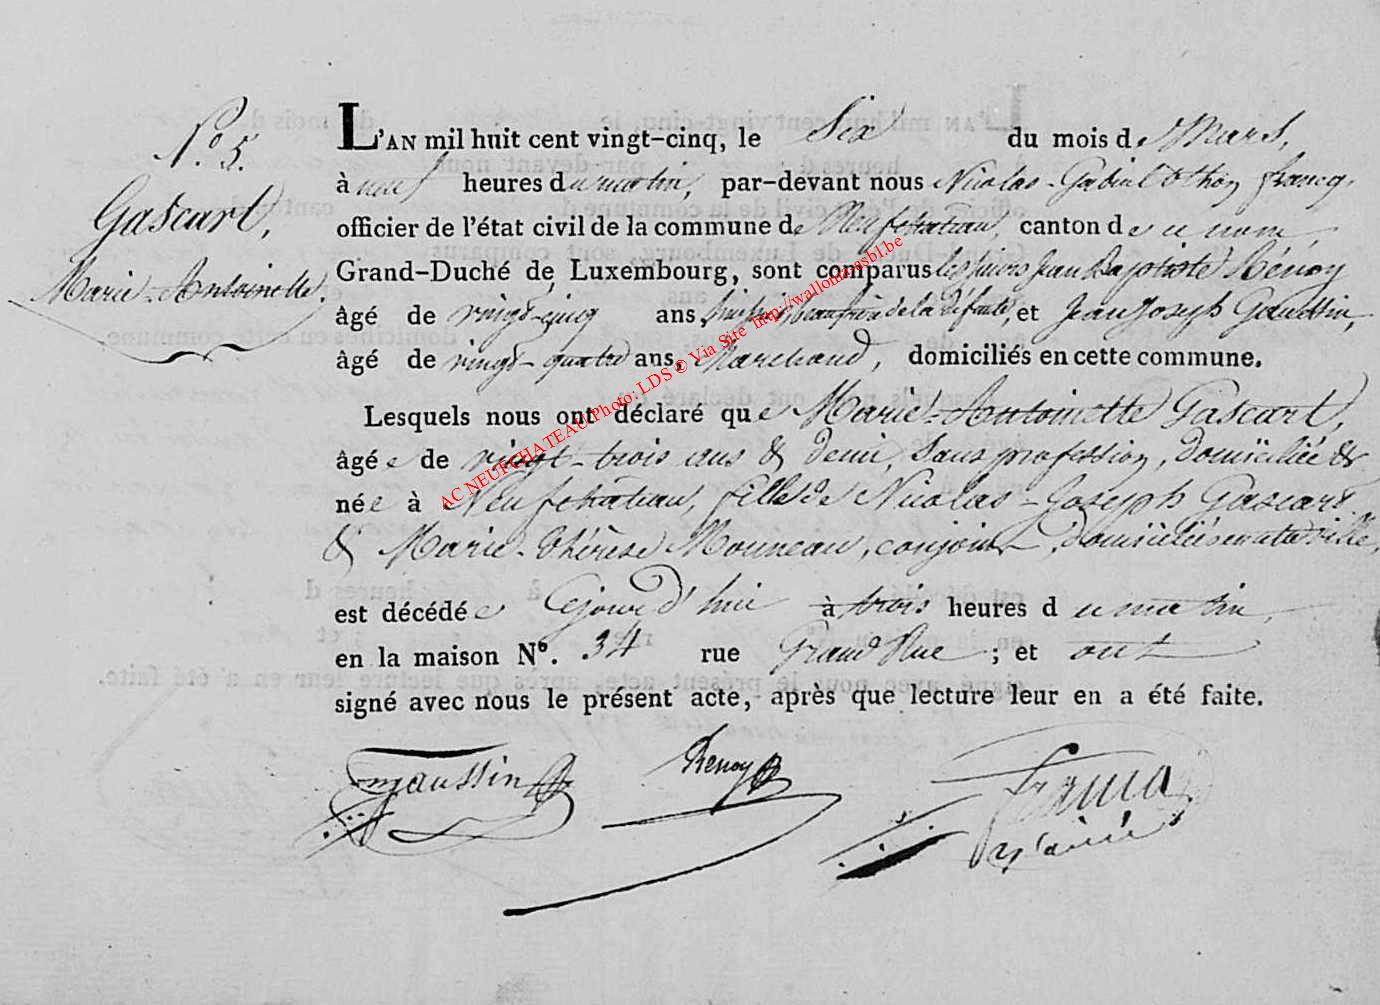 N.o 5.
Gascart,
Marie-Antoinette.
L'AN mil huit cent vingt-cinq, le Six du mois de Mars,
à neuf heures du matin, par-devant nous Nicolas-Gabriel Othon Francq,
officier de l'état civil de la commune de Neufchateau, canton de ce nom
Grand-Duché de Luxembourg, sont comparus les sieurs Jean Baptiste Rénoy
âgé de vingt-cinq ans, beaufrère de la défunte, et Jean Joseph Gaussin,
âgé de vingt-quatre ans, Marchand, domiciliés en cette commune.
Lesquels nous ont déclaré que Marie-Antoinette Gascart,
âgée de vingt-trois ans & demi, Sans profession, Domiciliée &
née à Neufchateau, fille de Nicolas-Joseph Gascart
& Marie-Thérèse Mouneau, conjoints, domiciliés en cette ville,
est décédée Cejourd'hui à trois heures du matin,
en la maison N°. 34 rue Grand Rue ; et ont
signé avec nous le présent acte, après que lecture leur en a été faite.
Gaussin Renoy Francq
AC NEUFCHATEAU Photo: LDS © Via Site http://wallonia-asbl.be